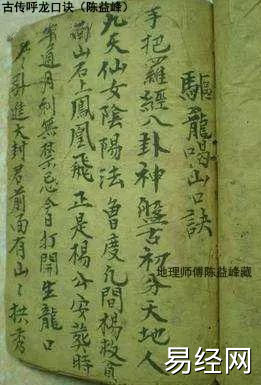 古传呼龙口诀（陈益峰）
驅龍喝山口訣
手把羅經八卦神盤古初分天地人
九天仙女陰陽法曾度凡間楊救貧
南山石上鳳凰飛正是楊公安葬時
年通月利無禁忌今日打開生龍口
引進大封君前面有山々拱秀
地理师傅陈益峰藏
易经网